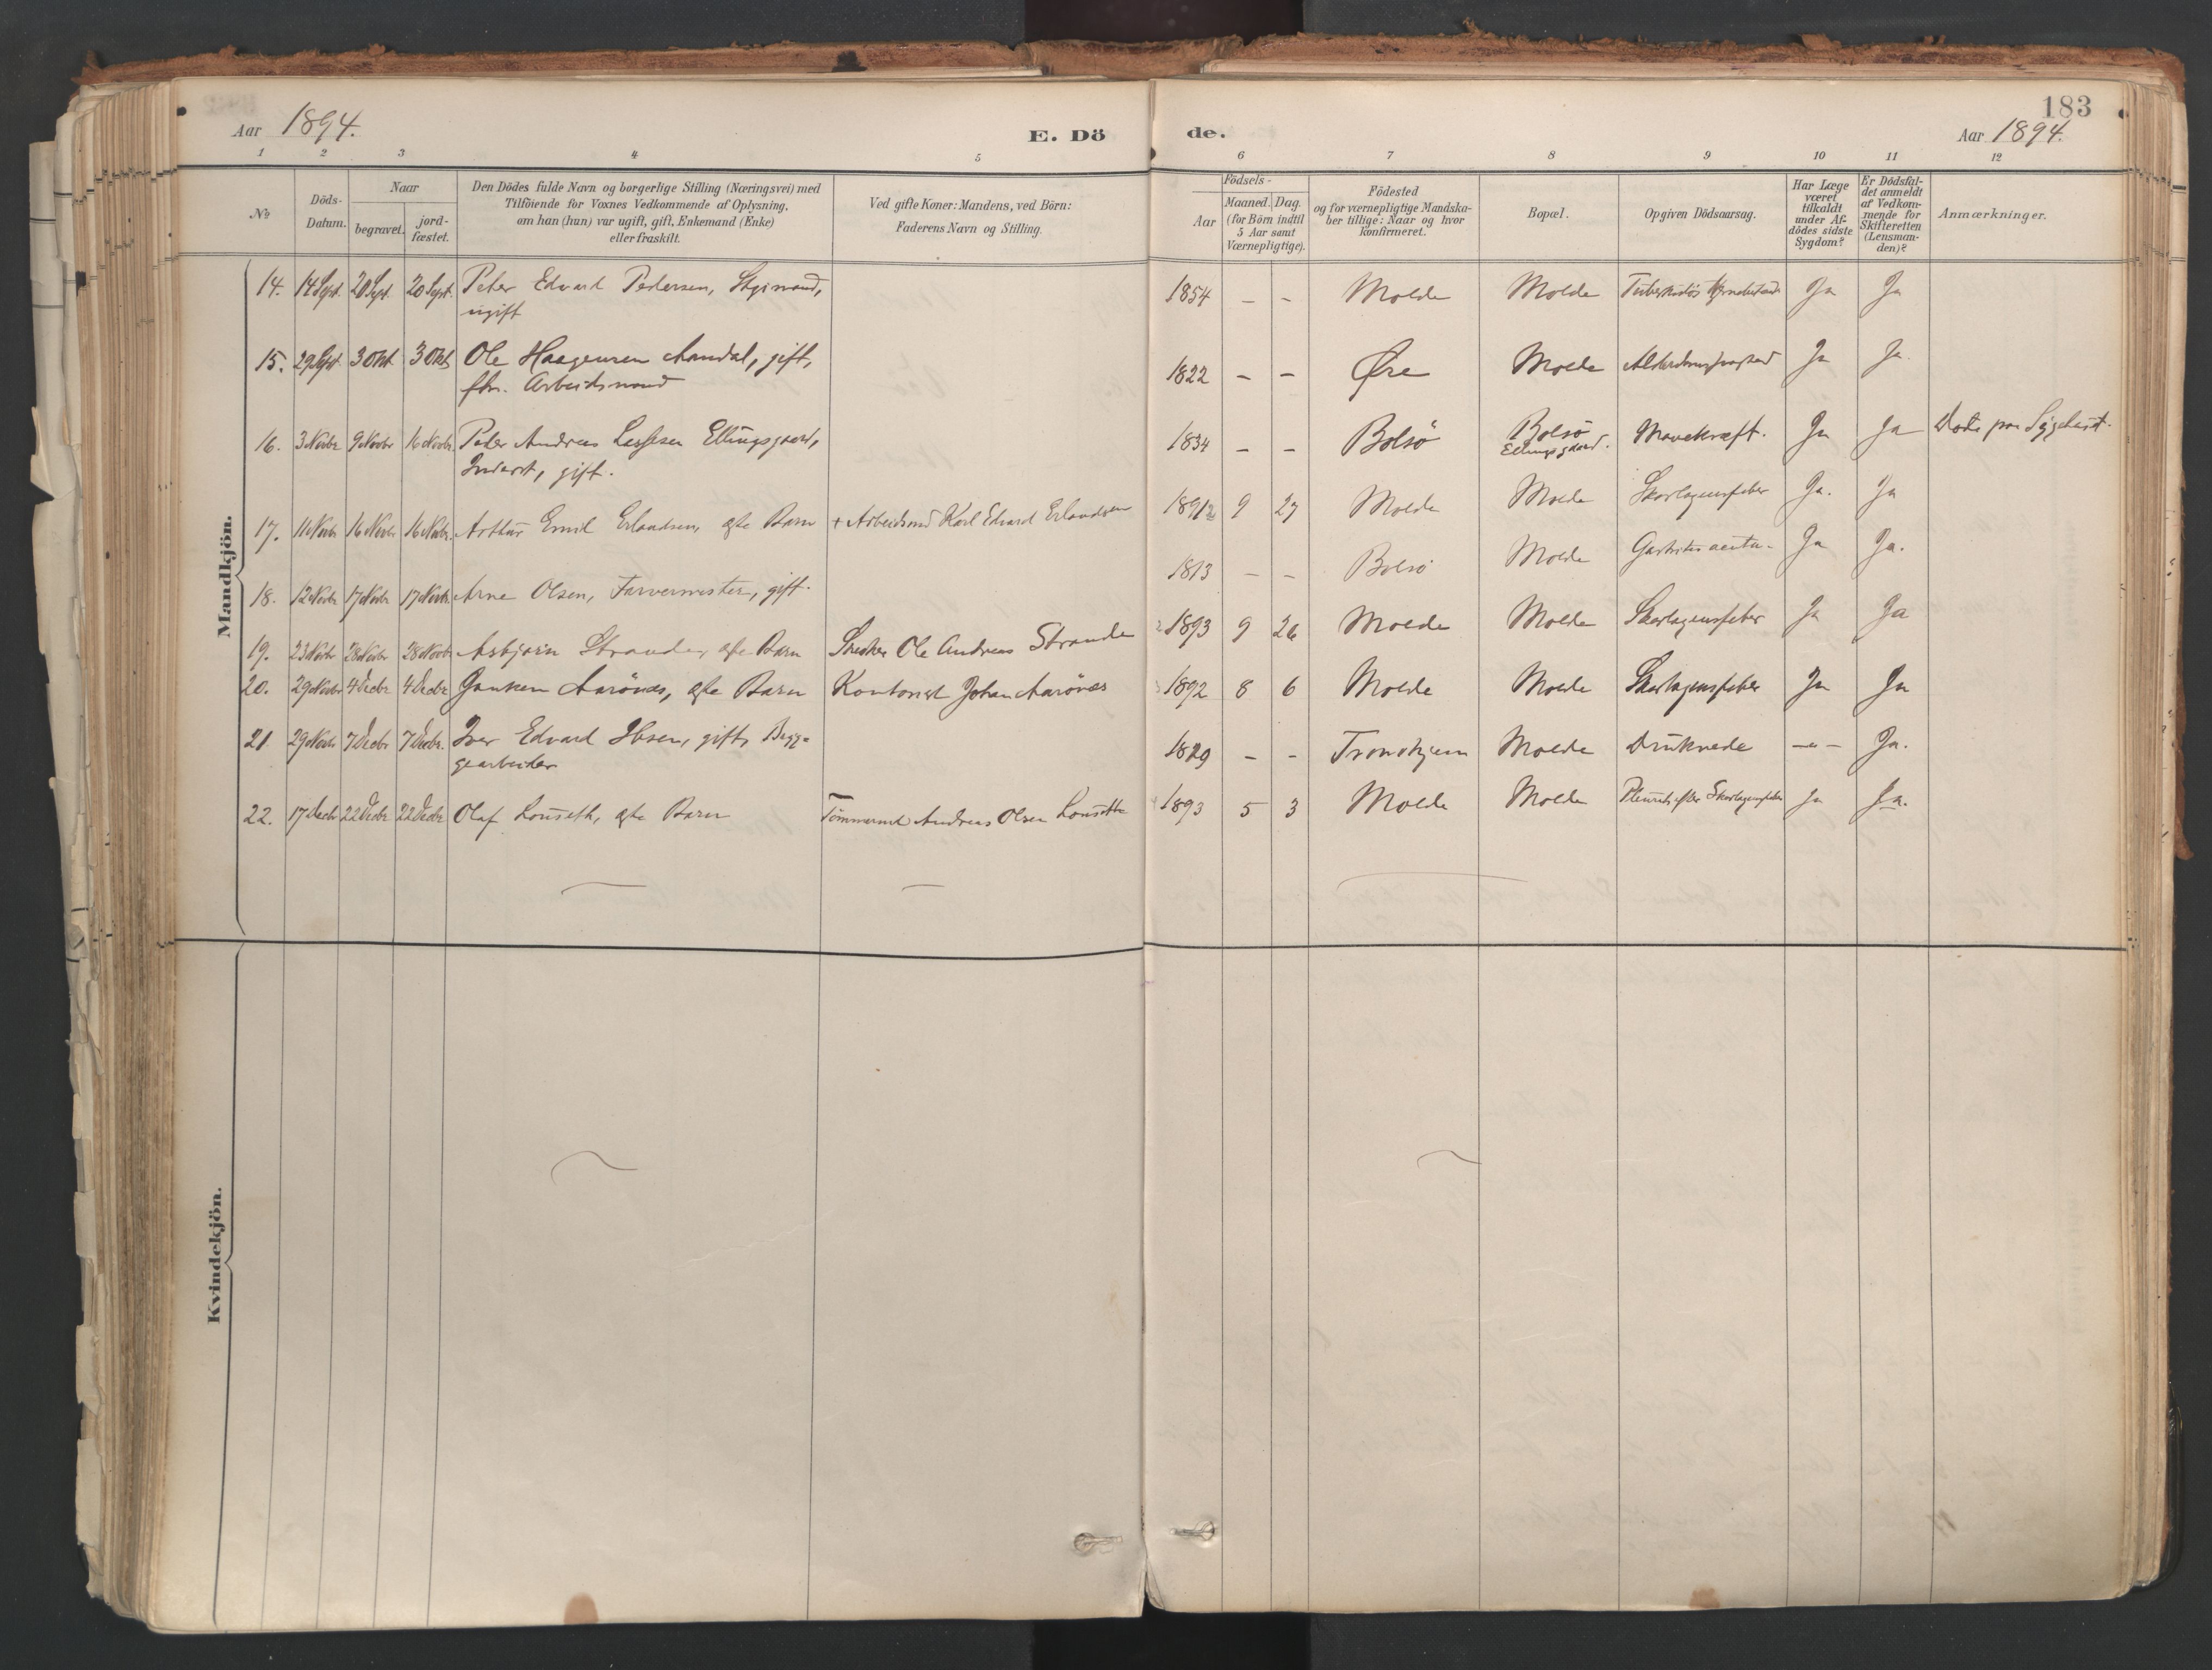 183
Aar 1894.
E. Dö
de.
Aar 1894.
1 2 3 4 5 6 7 8 9 10 11 12
No
Döds-
Datum.
Naar
begravet.
jord-
fæstet.
Den Dödes fulde Navn og borgerlige Stilling (Næringsvei) med
Tilföiende for Voxnes Vedkommende af Oplysning,
om han (hun) var ugift, gift, Enkemand (Enke)
eller fraskilt.
Ved gifte Koner: Mandens, ved Börn:
Faderens Navn og Stilling.
Födsels-
Aar
Maaned. Dag.
(for Börn indtil
5 Aar samt
Værnepligtige).
Födested
og for værnepligtige Mandska-
ber tillige: Naar og hvor
konfirmeret.
Bopæl.
Opgiven Dödsaarsag.
Har Læge
været
tilkaldt
under Af-
dödes sidste
Sygdom?
Er Dödsfal-
det anmeldt
af Vedkom-
mende for
Skifteretten
(Lensman-
den)?
Anmærkninger.
Mandkjön.
14. 14 Sept. 20 Sept. 20 Sept. Peter Edvard Pedersen, 1854 - - Molde Molde Ja Ja
ugift
15. 29 Sept. 3 Okt. 3 Okt. Ole Haagensen Aandal, gift, 1822 - - Øre Molde Ja Ja.
fhv. Arbeidsmand
16. 3 Novbr 9 Novbr 16 Novbr. Peder Andreas Ellingsgaard, 1834 - - Bolsö Bolsö Mavekræft. Ja Ja Døde paa Sygehuset.
Inderst, gift. Ellingsgaard.
17. 11 Novbr 16 Novbr 16 Novbr. Arthur Emil Erlandsen, ægte Barn + Arbeidsmd Karl Edvard Erlandsen 1891 9 27 Molde Molde Skarlagensfeber Ja. Ja
18. 12 Novbr 17 Novbr 17 Novbr. Arne Olsen, Farvermester, gift. 1813 - - Bolsö Molde Gastritis acuta. Ja Ja.
19. 23 Novbr 28 Novbr 28 Novbr Asbjørn Strande, ægte Barn Ole Andreas Strande 1893 9 26 Molde Molde Skarlagensfeber Ja Ja
20. 29 Novbr 4 Decbr 4 Decbr Aarönæs, ægte Barn Kontorist Johan Aarönæs 1892 8 6 Molde Molde Skarlagensfeber Ja Ja
21. 29 Novbr 7 Decbr 7 Decbr. Iver Edvard Ibsen, gift, Brygg- 1829 - - Tronhjem Molde Druknede -"- Ja.
gearbeider
22. 17 Decbr 22 Decbr 22 Decbr Olaf Lönseth, ægte Barn Tömmermd Andreas Olsen Lönseth 1893 5 3 Molde Molde Pleurit efter Skarlagensfeber Ja Ja.
Kvindekjön.